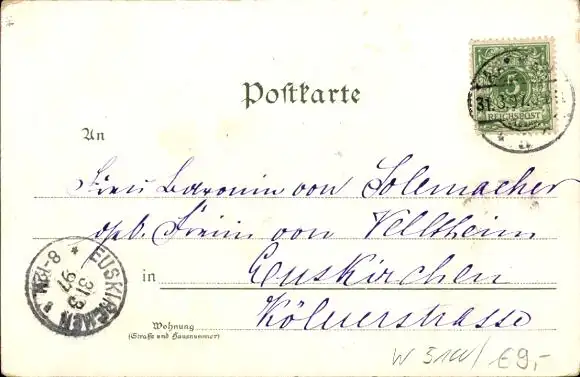 Postkarte
5
REICHSPOST
31.3.97.
An
Frau Baronin von Solemacher
geb. Freiin von Veltheim
in Euskirchen
Kölnerstrasse
Wohnung
(Straße und Hausnummer)
EUSKIRCHEN
31.3
97
8-12N.
€9,-